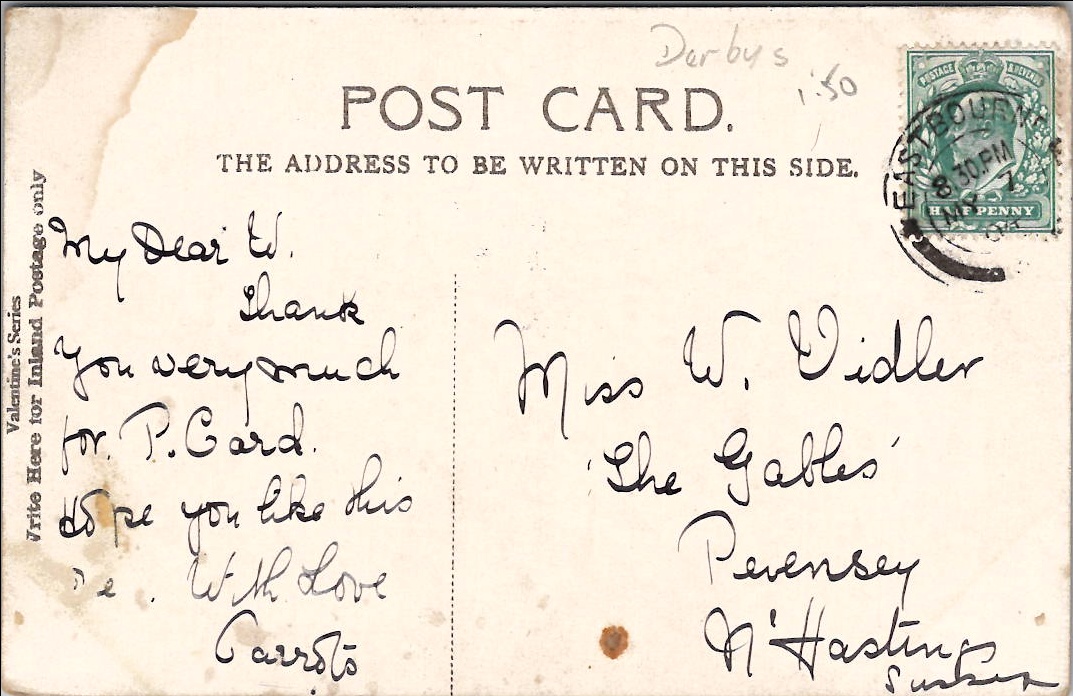 Derbys
1.50
POST CARD.
THE ADDRESS TO BE WRITTEN ON THIS SIDE.
POSTAGE & REVENUE
HALFPENNY
EASTBOURNE
8.30 PM
MY 1
Valentine's Series
Write Here for Inland Postage only
My Dear W.
Thank
you very much
for P. Card.
Hope you like this
With Love
Carrots
Miss W. Vidler
'The Gables'
Pevensey
N' Hastings
Sussex